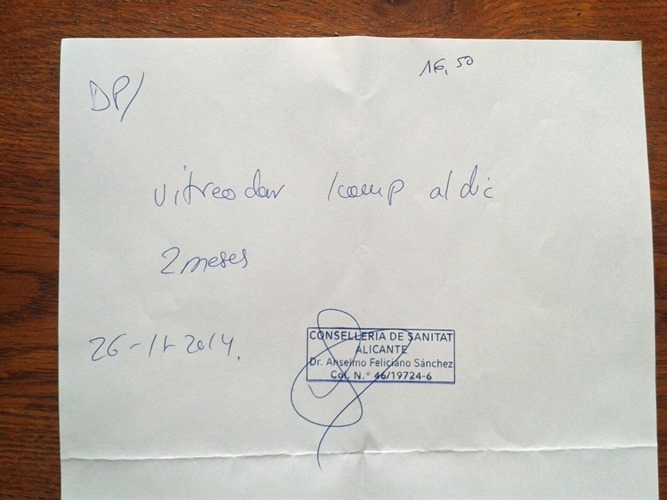 16,50
DP/
vitreoclar 1 comp al dia
2 meses
26-11-2014.
CONSELLERIA DE SANITAT
ALICANTE
Dr. Anselmo Feliciano Sánchez
Col. N.º 46/19724-6